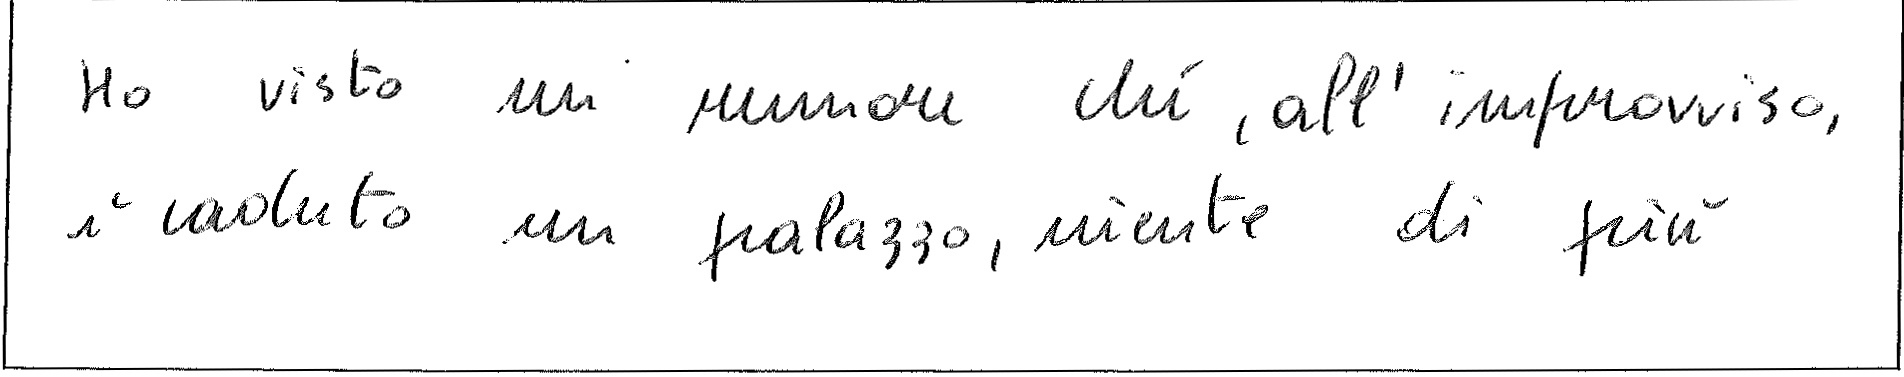 Ho visto un rumore ché, all'improvviso,
è caduto un palazzo, niente di più